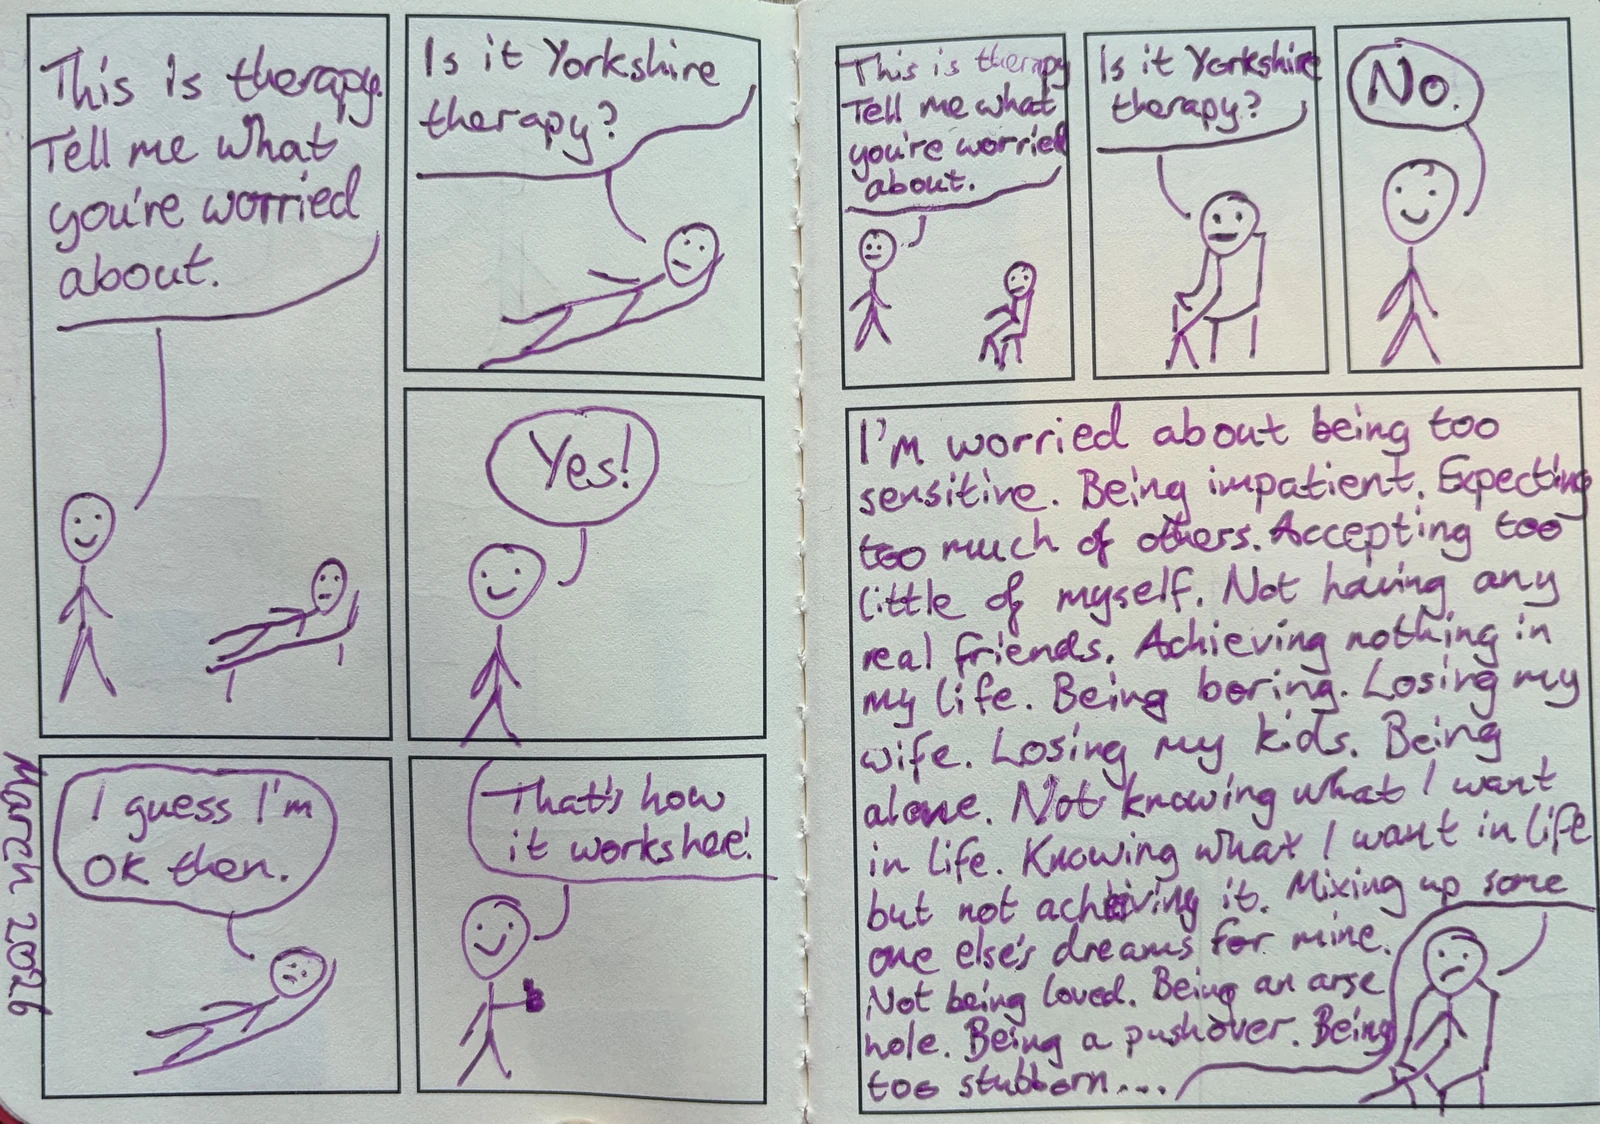 This is therapy.
Tell me what
you're worried
about.
Is it Yorkshire
therapy?
Yes!
I guess I'm
OK then.
That's how
it works here!
March 2026
This is therapy
Tell me what
you're worried
about.
Is it Yorkshire
therapy?
No.
I'm worried about being too
sensitive. Being impatient. Expecting
too much of others. Accepting too
little of myself. Not having any
real friends. Achieving nothing in
my life. Being boring. Losing my
wife. Losing my kids. Being
alone. Not knowing what I want
in life. Knowing what I want in life
but not achieving it. Mixing up some
one else's dreams for mine.
Not being loved. Being an arse
hole. Being a pushover. Being
too stubborn....